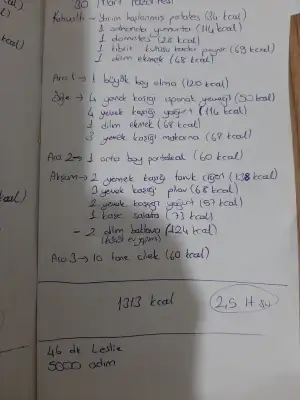 30 Mart Pazartesi
Kahvaltı → Yarım haşlanmış patates (34 kcal)
1 yumurta (114 kcal)
1 domates (28 kcal)
1 kibrit kutusu kadar peynir (69 kcal)
1 dilim ekmek (68 kcal)
Ara 1 → 1 büyük boy elma (120 kcal)
Öğle → 4 yemek kaşığı ıspanak yemeği (50 kcal)
4 yemek kaşığı yoğurt (114 kcal)
1 dilim ekmek (68 kcal)
3 yemek kaşığı makarna (68 kcal)
Ara 2 → 1 orta boy portakal (60 kcal)
Akşam → 2 yemek kaşığı tavuk ciğeri (138 kcal)
3 yemek kaşığı pilav (68 kcal)
2 yemek kaşığı yoğurt (57 kcal)
1 kase salata (71 kcal)
- 2 dilim baklava (124 kcal)
Ara 3 → 10 tane çilek (60 kcal)
1313 kcal 2,5 lt su
46 dk Leslie
5000 adım